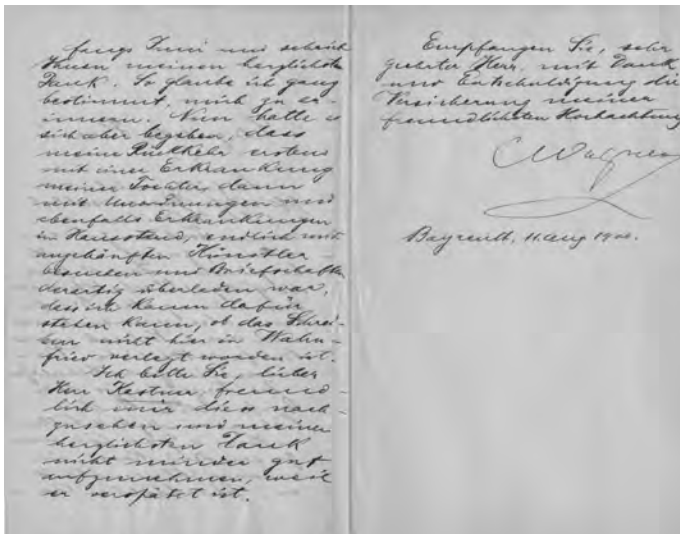 fangs Juni und schrieb
Ihnen meinen herzlichsten
Dank. So glaube ich ganz
bestimmt, mich zu er-
innern. Nun hatte es
sich aber begeben, dass
meine Rückkehr erstens
mit einer Erkrankung
meiner Tochter, dann
mit Unordnungen und
ebenfalls Erkrankungen
im Hausstand, endlich mit
angehäuften Künstler-
besuchen und Briefschaften
derartig überladen war,
dass ich kaum dafür
stehen kann, ob das Schrei-
ben nicht hier in Wahn-
fried verlegt worden ist.
Ich bitte Sie, lieber
Herr Kestner, freund-
lich mir diess nach-
zusehen und meinen
herzlichsten Dank
nicht minder gut
aufzunehmen, weil
er verspätet ist.
Empfangen Sie, sehr
geehrter Herr, mit Dank
und Entschuldigung die
Versicherung meiner
freundlichsten Hochachtung
CWagner
Bayreuth, 11. Aug 1900.